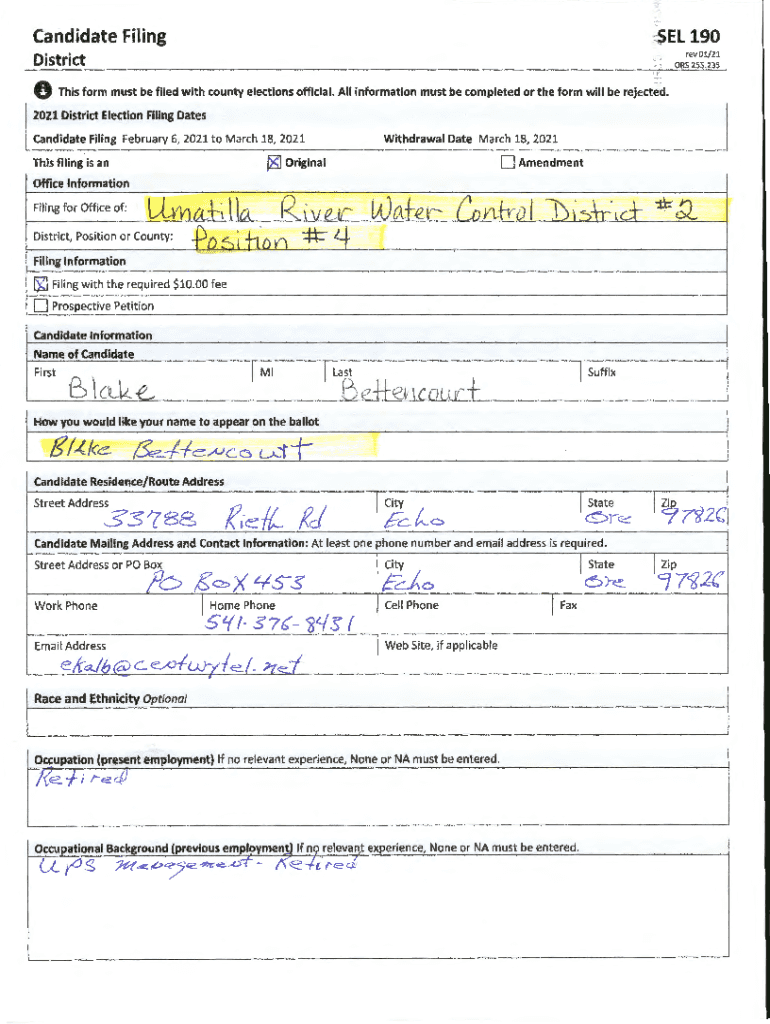 Candidate Filing
SEL 190
District
rev 01/21
ORS 255.235
This form must be filed with county elections official. All information must be completed or the form will be rejected.
2021 District Election Filing Dates
Candidate Filing February 6, 2021 to March 18, 2021 Withdrawal Date March 18, 2021
This filing is an Original Amendment
Office Information
Filing for Office of: Umatilla River Water Control District #2
District, Position or County: Position #4
Filing Information
Filing with the required $10.00 fee
Prospective Petition
Candidate Information
Name of Candidate
First MI Last Suffix
Blake Bettencourt
How you would like your name to appear on the ballot
Blake Bettencourt
Candidate Residence/Route Address
Street Address City State Zip
33788 Rieth Rd Echo Ore 97826
Candidate Mailing Address and Contact Information: At least one phone number and email address is required.
Street Address or PO Box City State Zip
PO BOX 453 Echo Ore 97826
Work Phone Home Phone Cell Phone Fax
541-376-8431
Email Address Web Site, if applicable
ekalb@centurytel.net
Race and Ethnicity Optional
Occupation (present employment) If no relevant experience, None or NA must be entered.
Retired
Occupational Background (previous employment) If no relevant experience, None or NA must be entered.
UPS management - Retired